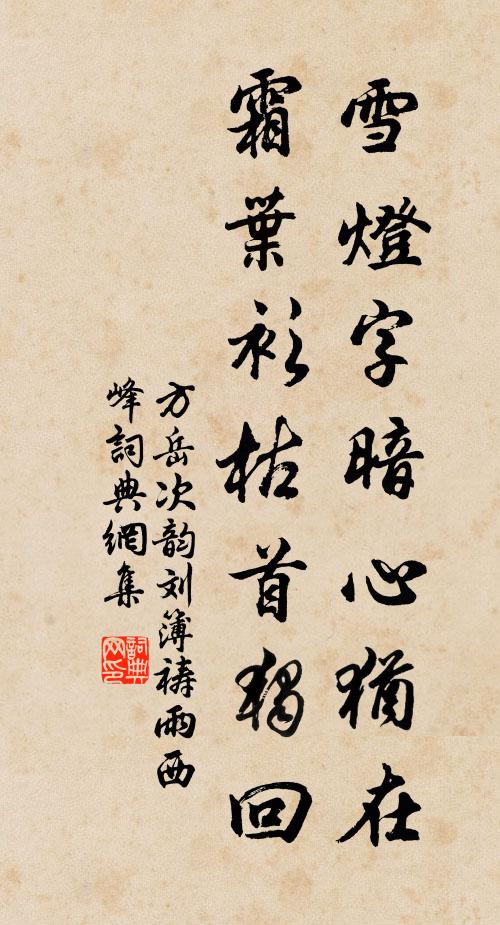 雪燈字暗心猶在
霜葉衫枯首獨回
方岳次韵刘簿祷雨西
峰詞典網集
詞典
网印